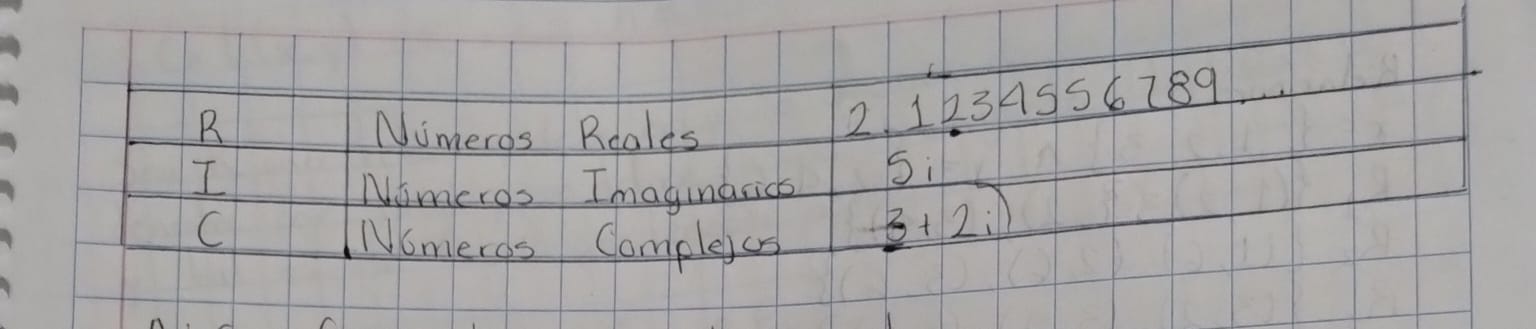 R Números Reales 2.1234556789...
I Números Imaginarios 5i
C Números Complejos 3+2i)